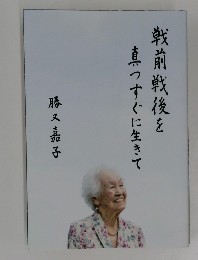 戦前戦後を
真っすぐに生きて
勝又嘉子